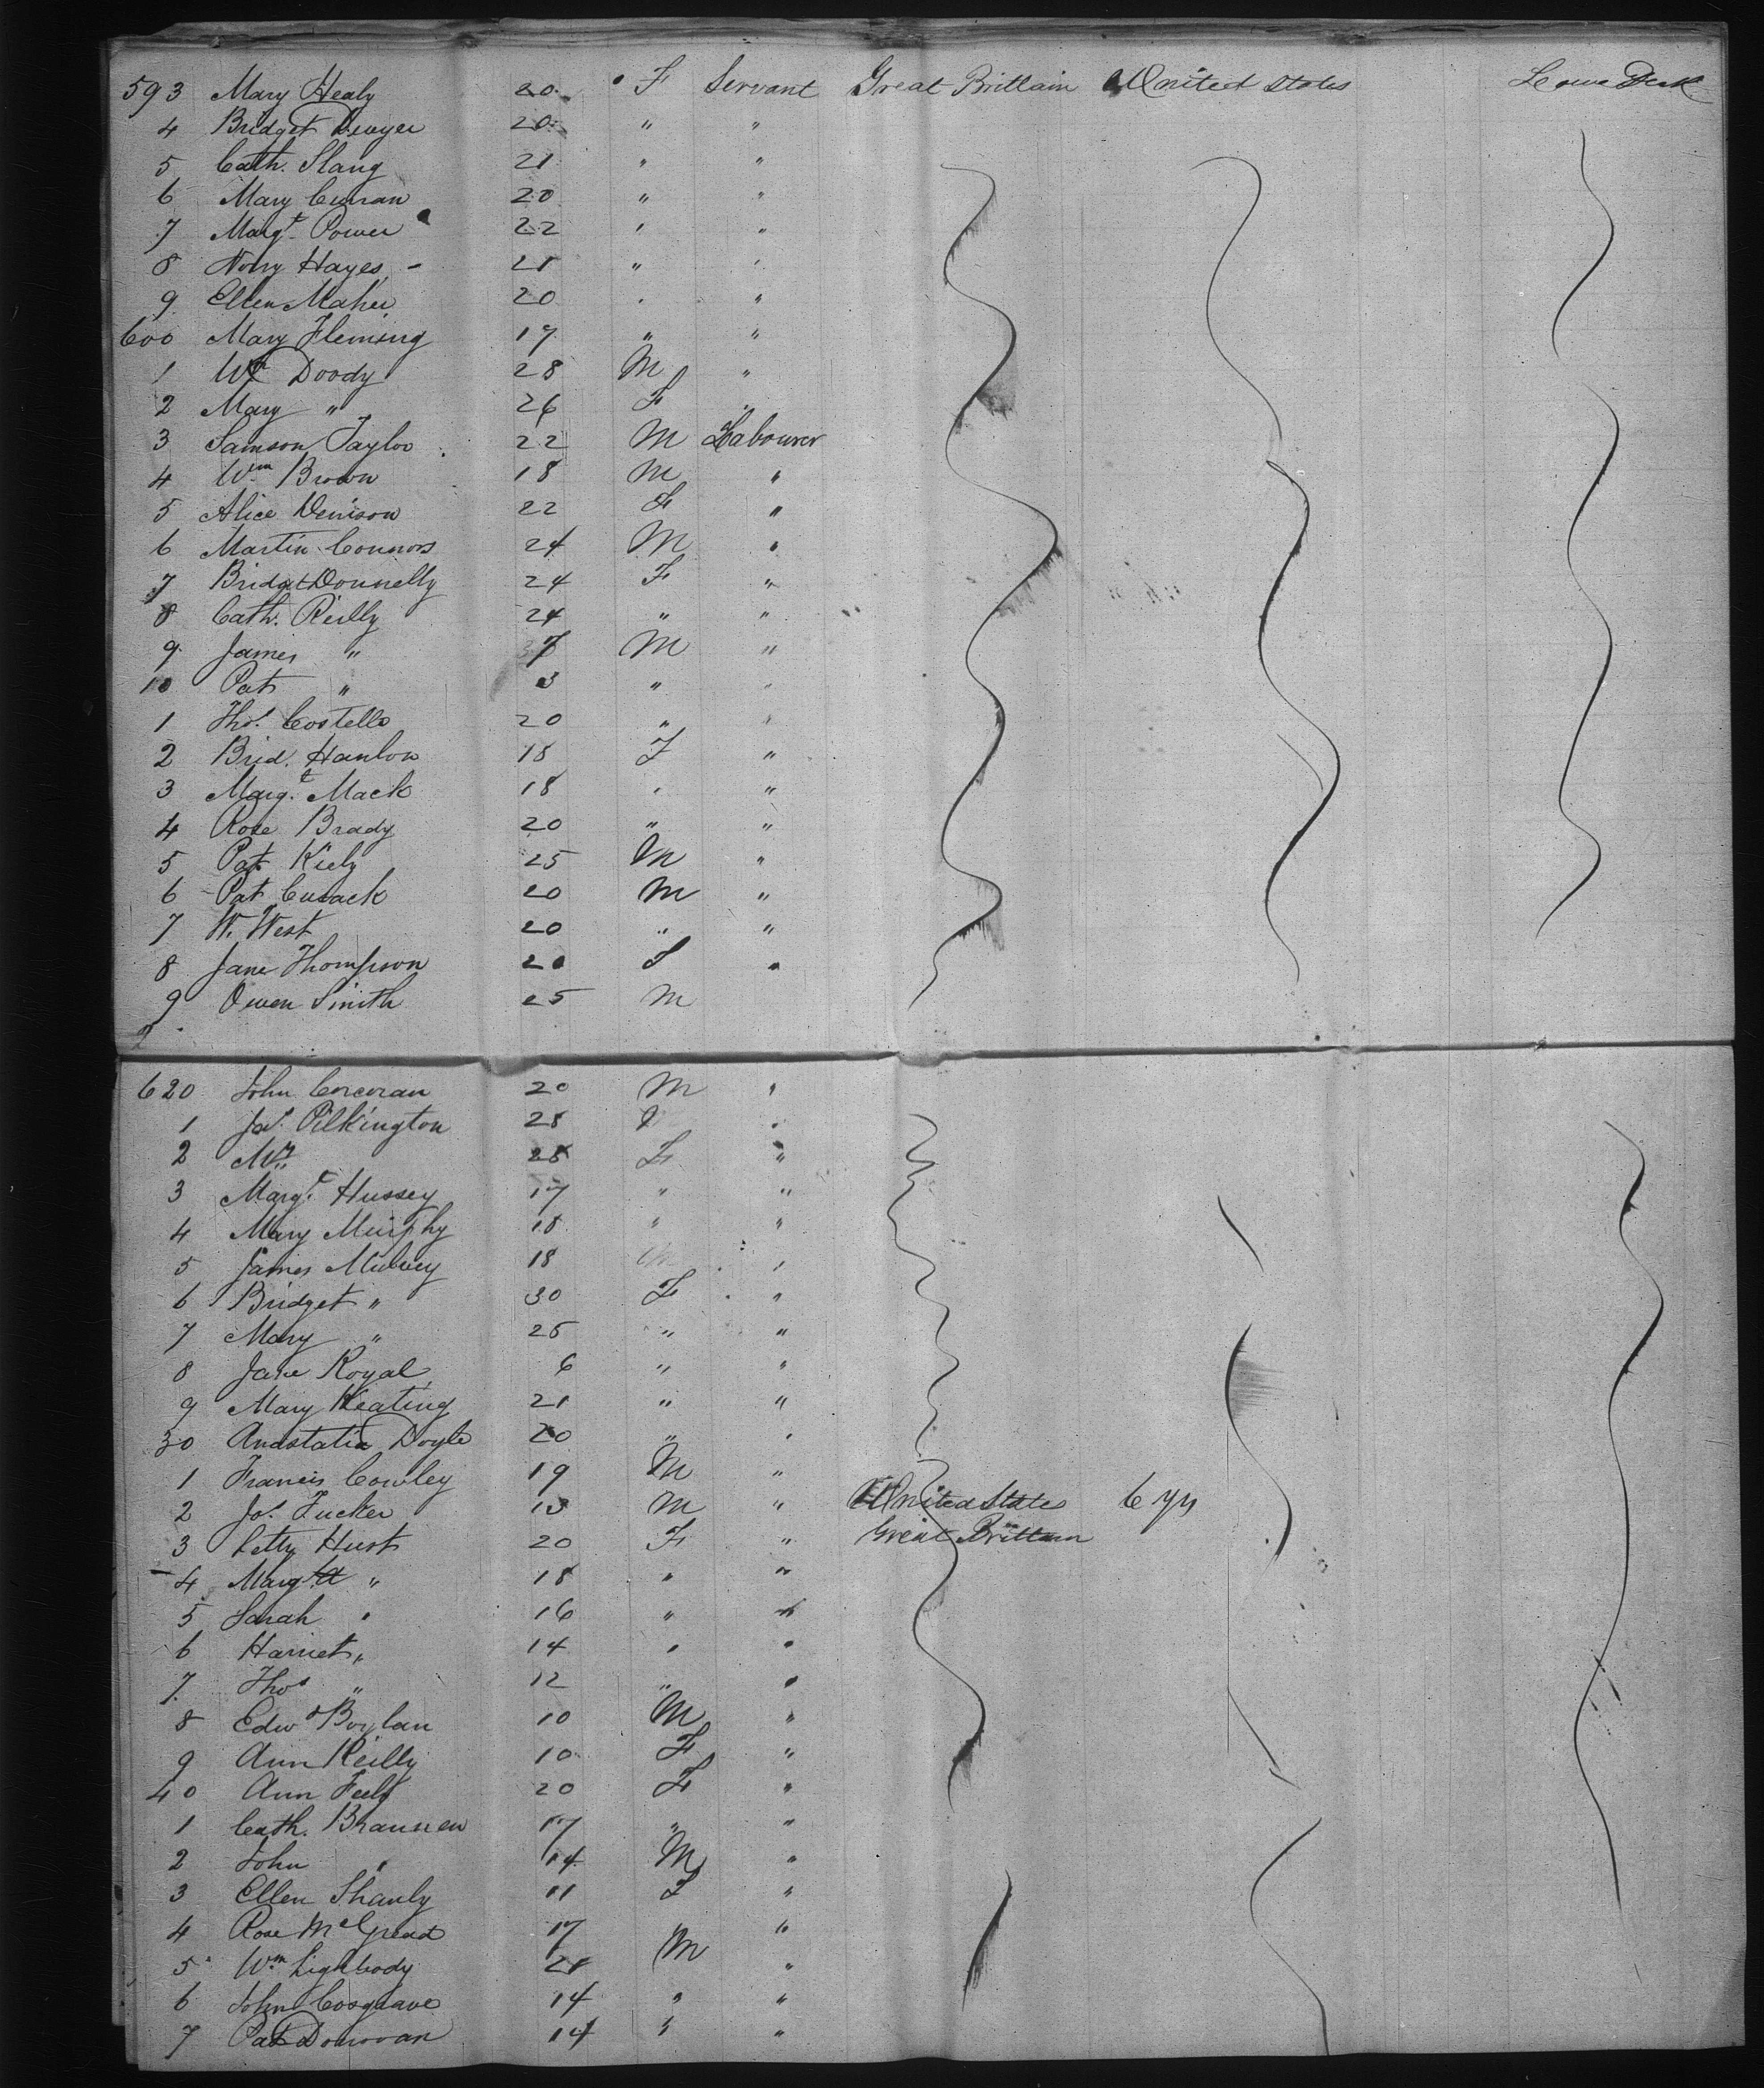 593 Mary Healy 20 F Servant Great Brittain United States Lower Deck
4 Bridget Dwyer 20 " "
5 Cath. Slang 21 " "
6 Mary Curran 20 " "
7 Margt Power 22 " "
8 Nory Hayes 21 " "
9 Ellen Maher 20 " "
600 Mary Fleming 19 " "
1 Wm Doody 28 M "
2 Mary " 26 F "
3 Samson Taylor 22 M Labourer
4 Wm Brown 18 M "
5 Alice Denison 22 F "
6 Martin Connors 24 M "
7 Bridget Donnelly 24 F "
8 Cath. Reilly 24 " "
9 James " 7 M "
10 Pat " 3 " "
1 Thos Costello 20 " "
2 Brid. Hanlon 18 F "
3 Margt Mack 18 " "
4 Rose Brady 20 " "
5 Pat Kiely 25 M "
6 Pat Cusack 20 M "
7 W. West 20 " "
8 Jane Thompson 20 F "
9 Owen Smith 25 M
620 John Corcoran 20 M "
1 Jas Pilkington 28 "
2 Mrs " 28 F "
3 Margt Hussey 17 " "
4 Mary Murphy 18 " "
5 James Mulvey 18 M "
6 Bridget " 30 F "
7 Mary " 25 " "
8 Jane Royal 6 " "
9 Mary Keating 21 " "
30 Anastatia Doyle 20 " "
1 Francis Cowley 19 M "
2 Jos. Tucker 13 M " United States 6 yrs
3 Letty Hust 20 F " Great Brittain
4 Margtt " 18 " "
5 Sarah " 16 " "
6 Harriet " 14 " "
7 Thos " 12 " "
8 Edwd Boylan 10 M "
9 Ann Reilly 10 F "
40 Ann 20 F "
1 Cath. Brannen 17 " "
2 John " 14 M "
3 Ellen Shanly 11 F "
4 Rose 17 "
5 Wm Lighbody 21 M "
6 John Cosgrave 14 " "
7 Pat Donovan 14 " "